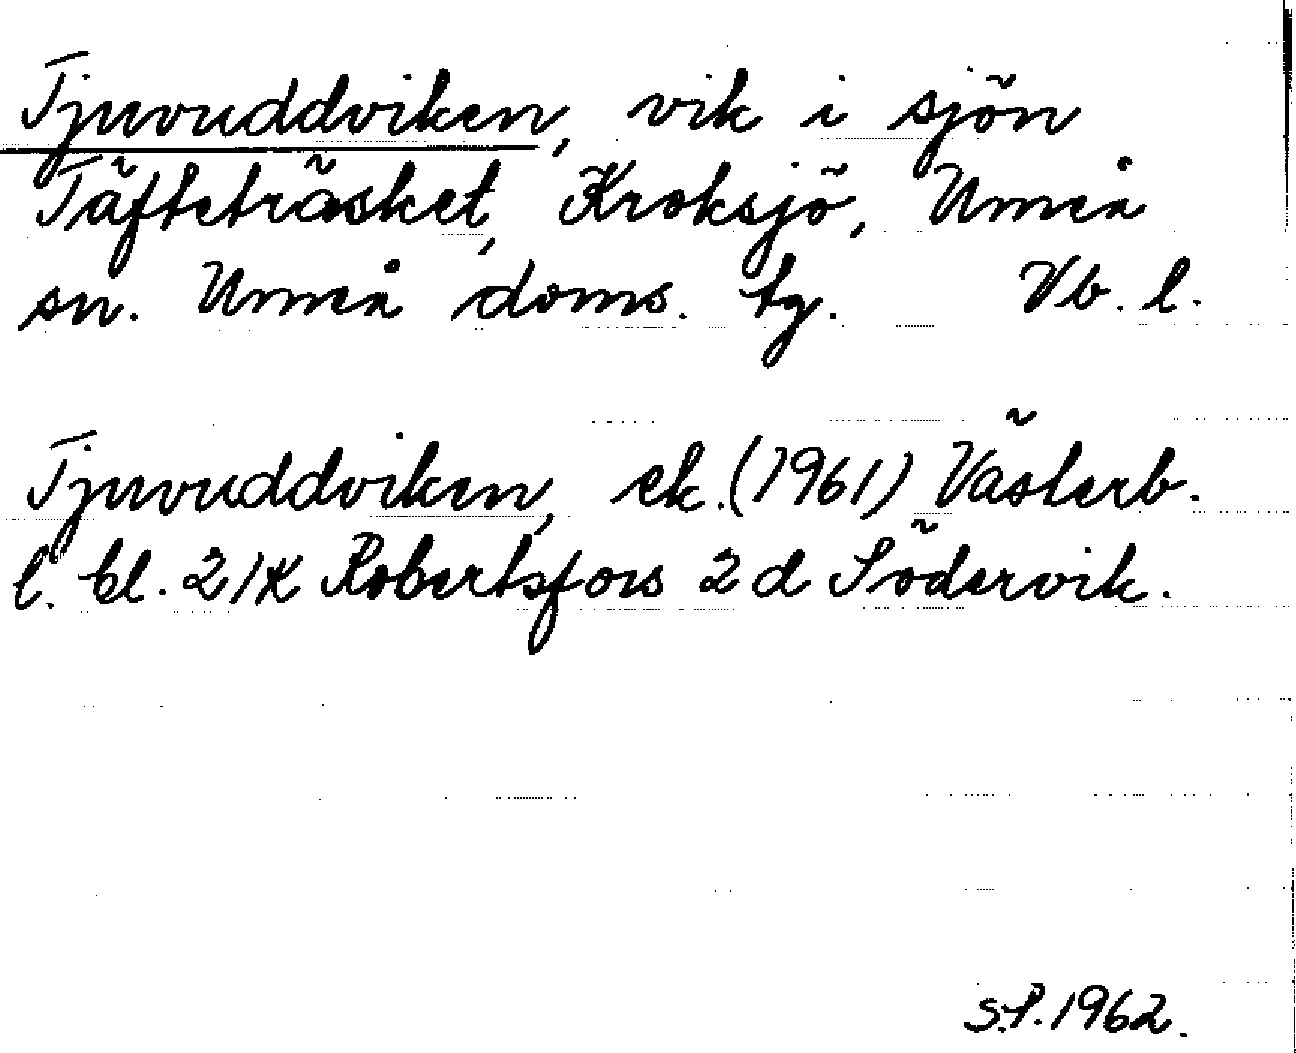 Tjuvuddviken, vik i sjön
Täfteträsket, Kroksjö, Umeå
sn. Umeå doms. tg. Vb. l.
Tjuvuddviken, ek. (1961) Västerb.
l. bl. 21K Robertsfors 2 d Södervik.
S.P. 1962.